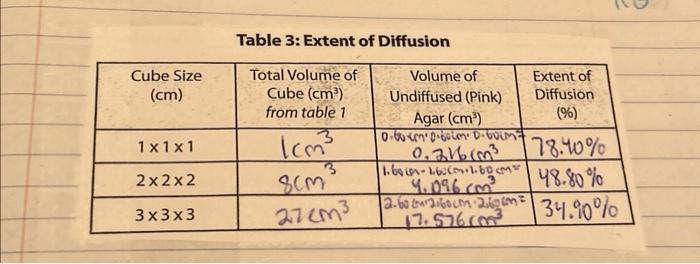 Table 3: Extent of Diffusion
Cube Size (cm) Total Volume of Cube (cm³) from table 1 Volume of Undiffused (Pink) Agar (cm³) Extent of Diffusion (%)
1 x 1 x 1 1cm³ 0.60cm·0.60cm·0.60cm= 0.216cm³ 78.40%
2 x 2 x 2 8cm³ 1.60cm·1.60cm·1.60cm= 4.096cm³ 48.80%
3 x 3 x 3 27cm³ 2.60cm·2.60cm·2.60cm= 17.576cm³ 34.90%